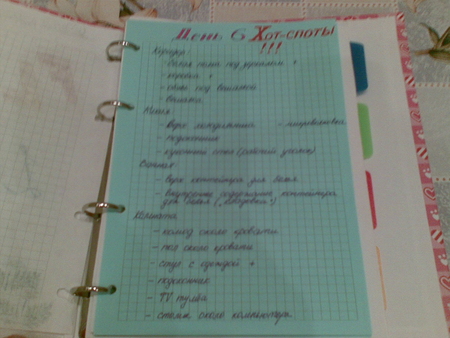 День 6 Хот-споты
!!!
Коридор:
- белая полка под зеркалом +
- коробки +
- обувь под вешалкой
- вешалка
Кухня:
- верх холодильника - микроволновка
- подоконник
- кухонный стол (рабочий уголок)
Ванная:
- верх контейнера для белья
- внутреннее содержимое контейнера
для белья
Комната
- комод около кровати
- пол около кровати
- стул с одеждой +
- подоконник
- TV тумба
- столик около компьютера